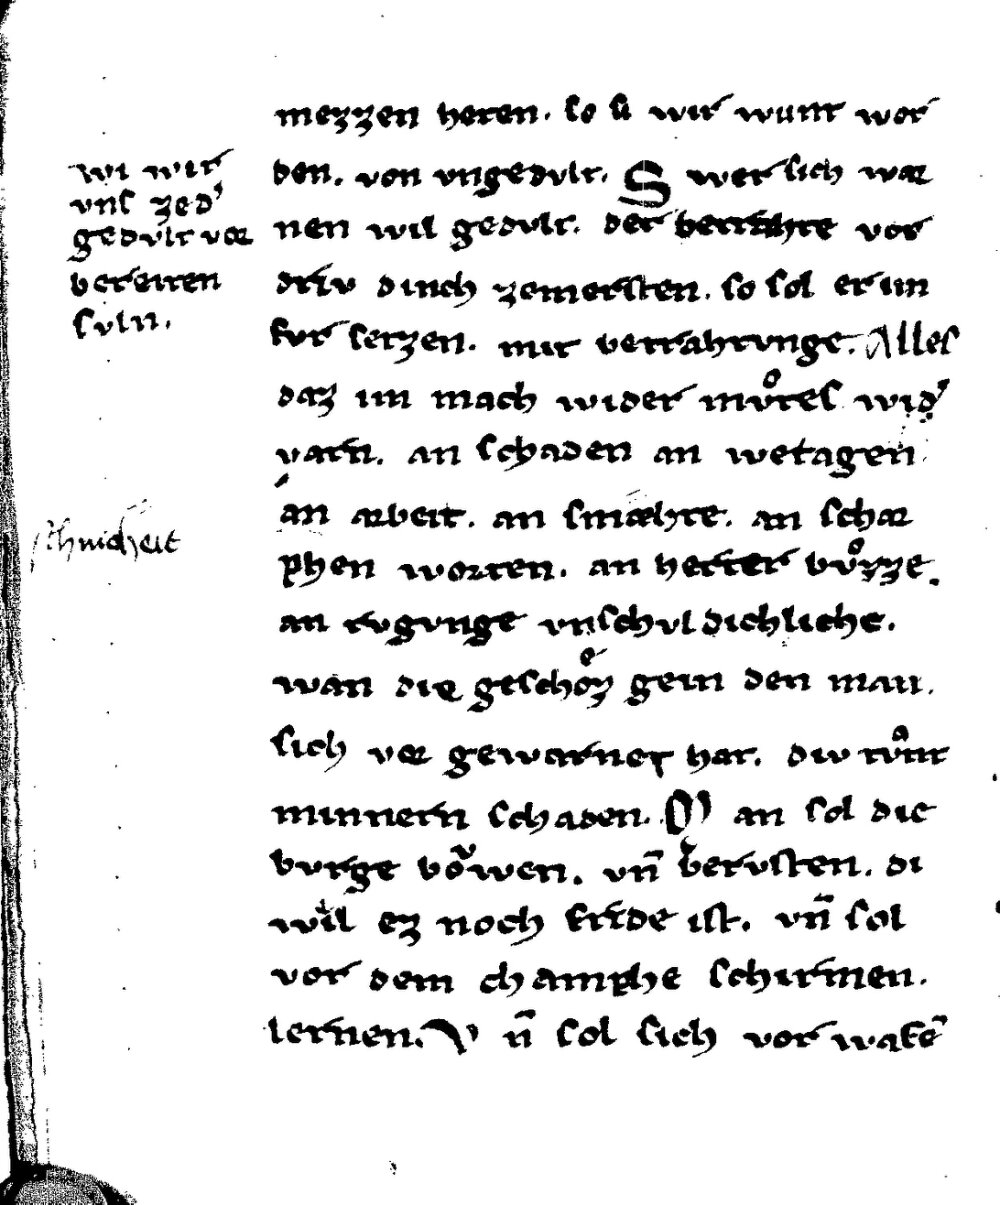 mezzen heren. so si wir wunt wor
den. von vngedvlt. Swer sich war
nen wil gedvlt. der betrahte vor
driv dinch zemersten. so sol er im
fvr setzen. mit betrahtvnge. Alles
daz im mach wider mvͦtes wid͛
varn. an schaden an wetagen
an arbeit. an smæhte. an schar
phen worten. an herter bvͦzze.
an rvgvnge vnschvldichliche.
wan die geschoͤz gein den man.
sich vor gewarnet hat. div tvͦnt
minnern schaden. Man sol die
bvrge boͮwen. vn̄ bervsten. di
wil ez noch fride ist. vn̄ sol
vor dem champhe schirmen.
lernen. Vn̄ sol sich vor wafē
wi wir
vns zed͛
gedvlt vor
bereiten
svln.